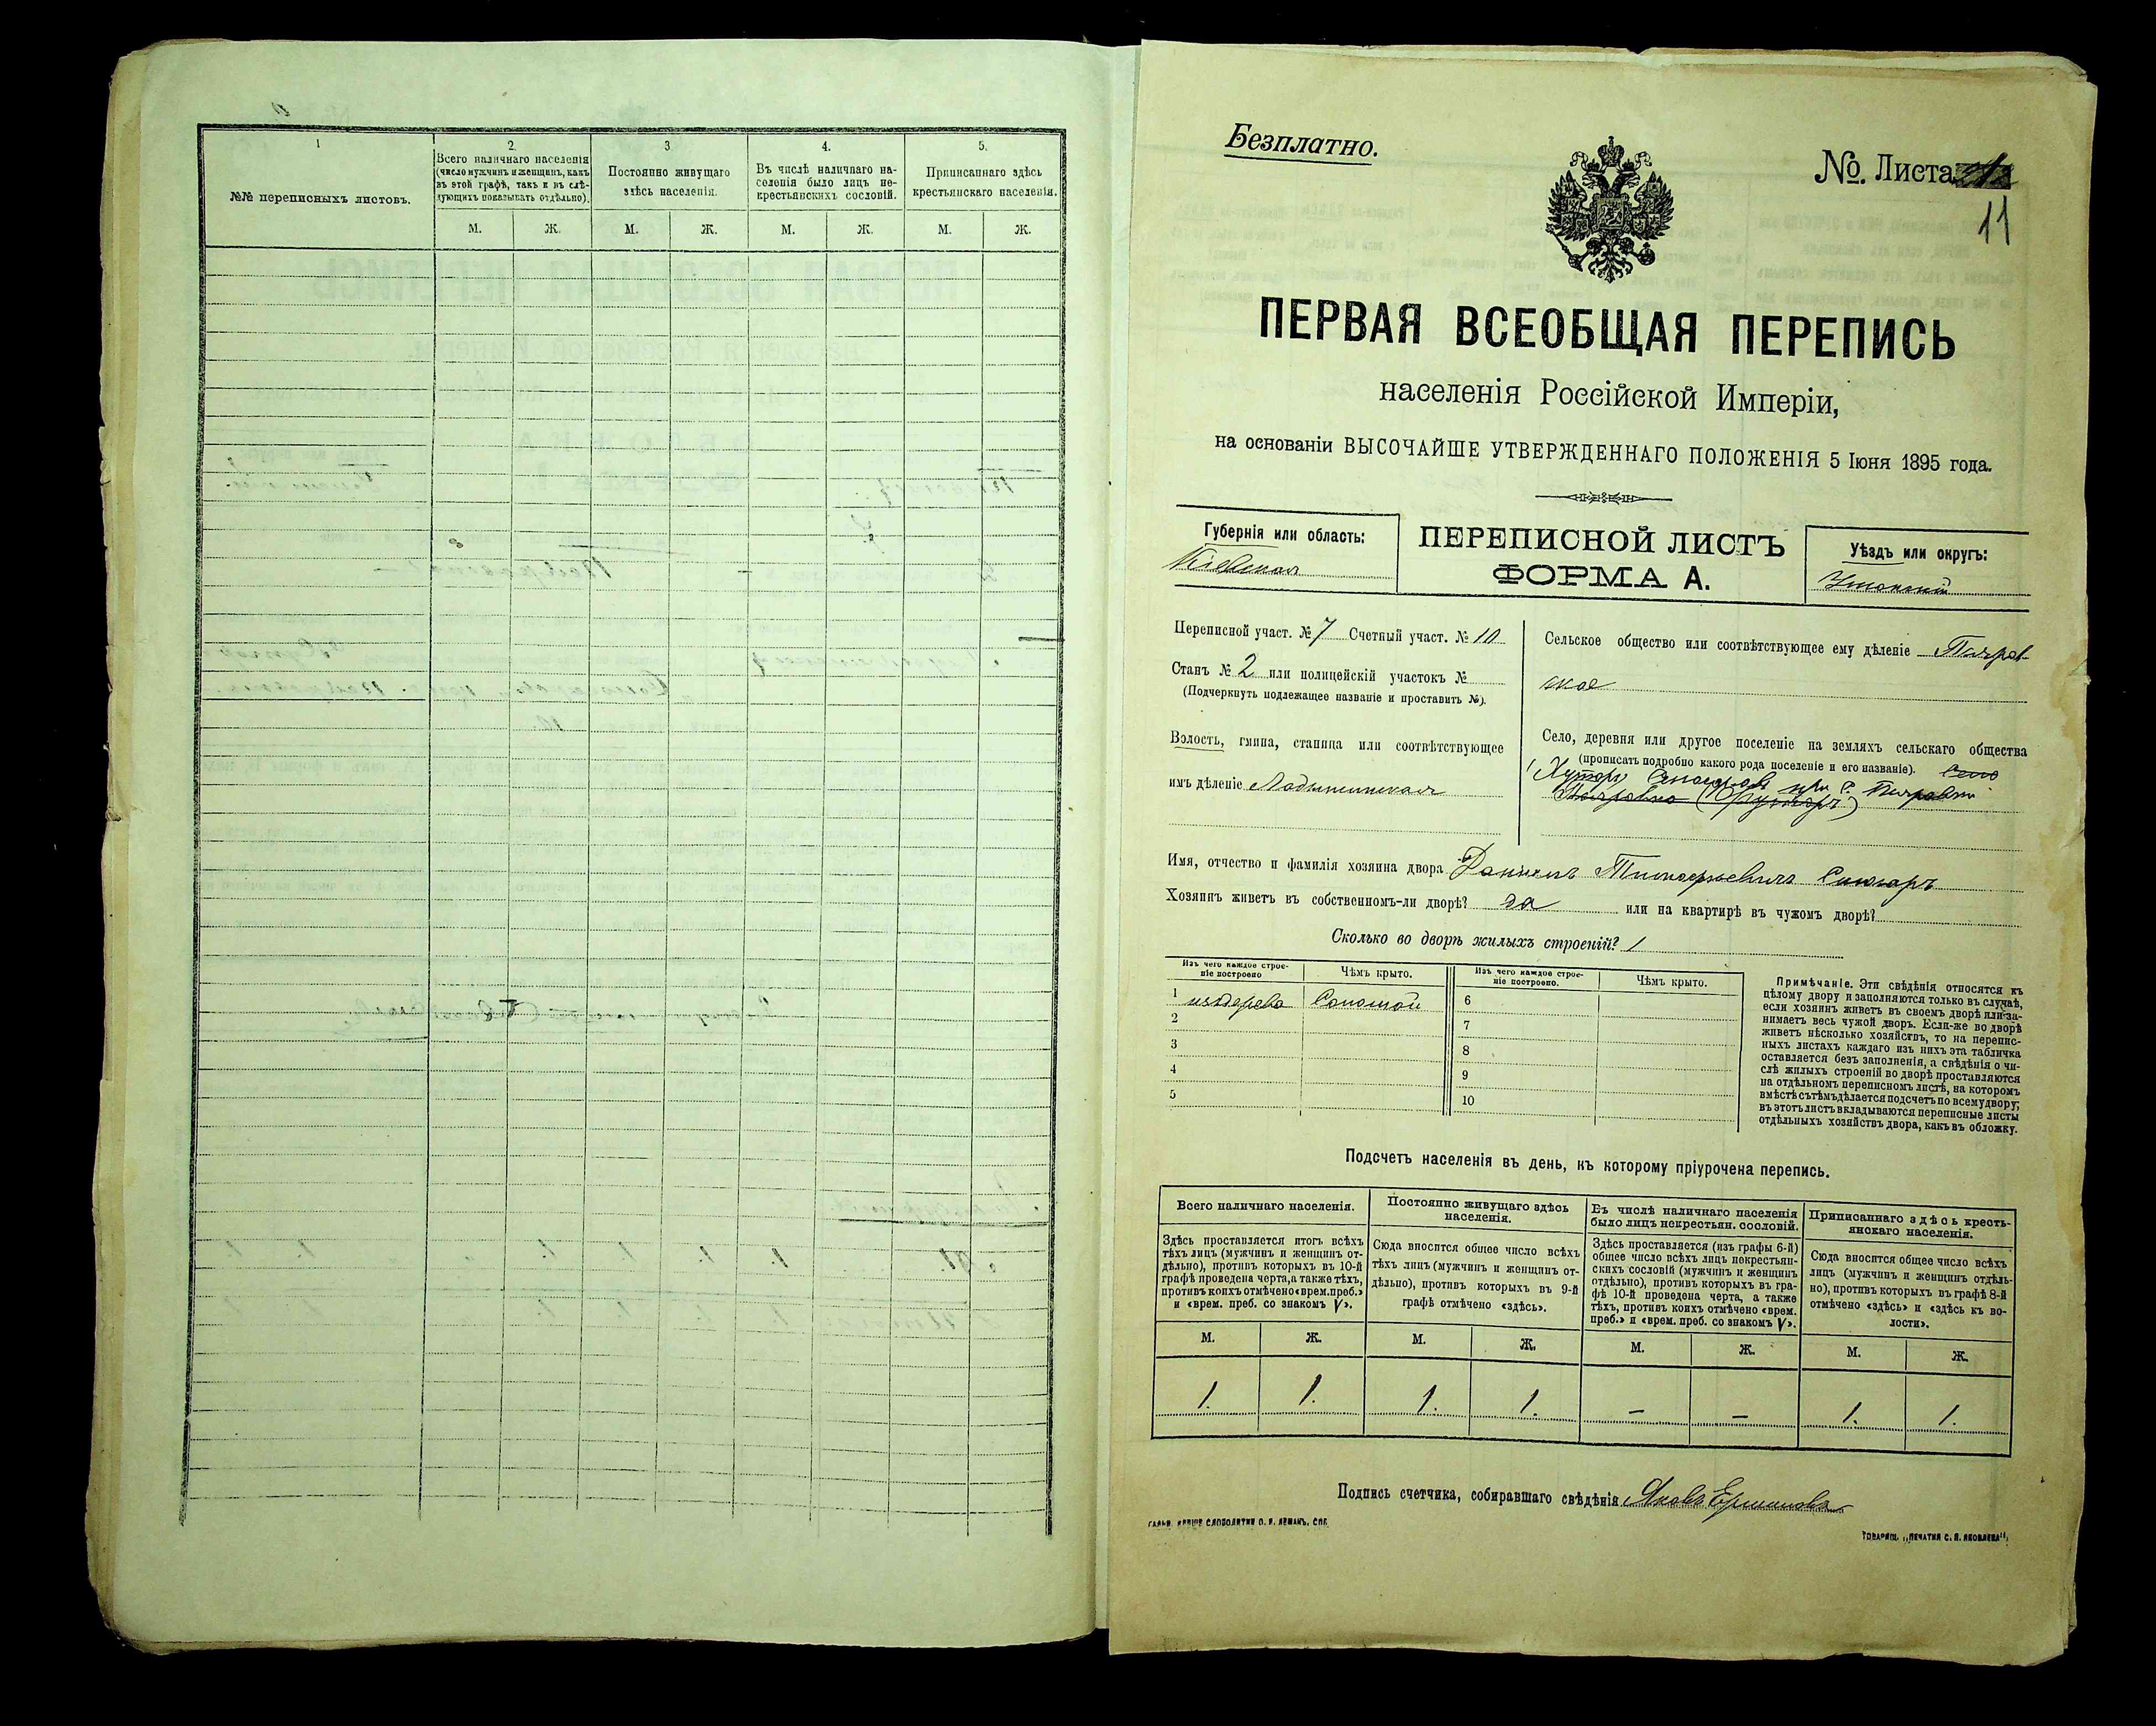 1
№№ переписныхъ листовъ.
2.
Всего наличнаго населенія
(число мужчинъ и женщинъ, какъ
въ этой графѣ, такъ и въ слѣ-
дующихъ показывать отдѣльно).
3
Постоянно живущаго
здѣсь населенія.
4.
Въ числѣ наличнаго на-
селенія было лицъ не-
крестьянскихъ сословій.
5.
Приписаннаго здѣсь
крестьянскаго населенія.
М. Ж. М. Ж. М. Ж. М. Ж.
Безплатно.
№. Листа
11
ПЕРВАЯ ВСЕОБЩАЯ ПЕРЕПИСЬ
населенія Россійской Имперіи,
на основаніи ВЫСОЧАЙШЕ УТВЕРЖДЕННАГО ПОЛОЖЕНІЯ 5 Іюня 1895 года.
Губернія или область:
Кіевская
ПЕРЕПИСНОЙ ЛИСТЪ
ФОРМА А.
Уѣздъ или округъ:
Уманскій
Переписной участ. № 7 Счетный участ. № 10
Станъ № 2 или полицейскій участокъ №
(Подчеркнуть подлежащее названіе и проставить №).
Волость, гмина, станица или соотвѣтствующее
имъ дѣленіе Ладыжинская
Сельское общество или соотвѣтствующее ему дѣленіе
ское
Село, деревня или другое поселеніе на земляхъ сельскаго общества
(прописать подробно какого рода поселеніе и его названіе). Село
Хуторъ при с.
Имя, отчество и фамилія хозяина двора Даніилъ Тимофѣевичъ
Хозяинъ живетъ въ собственномъ-ли дворѣ? да или на квартирѣ въ чужомъ дворѣ?
Сколько во дворѣ жилыхъ строеній? 1
Изъ чего каждое строе-
ніе построено
Чѣмъ крыто.
Изъ чего каждое строе-
ніе построено.
Чѣмъ крыто.
1 изъ дерева Соломой
2
3
4
5
6
7
8
9
10
Примѣчаніе. Эти свѣдѣнія относятся къ
цѣлому двору и заполняются только въ случаѣ,
если хозяинъ живетъ въ своемъ дворѣ или за-
нимаетъ весь чужой дворъ. Если-же во дворѣ
живетъ нѣсколько хозяйствъ, то на перепис-
ныхъ листахъ каждаго изъ нихъ эта табличка
оставляется безъ заполненія, а свѣдѣнія о чи-
слѣ жилыхъ строеній во дворѣ проставляются
на отдѣльномъ переписномъ листѣ, на которомъ
вмѣстѣ съ тѣмъ дѣлается подсчетъ по всему двору;
въ этотъ листъ вкладываются переписные листы
отдѣльныхъ хозяйствъ двора, какъ въ обложку.
Подсчетъ населенія въ день, къ которому пріурочена перепись.
Всего наличнаго населенія.
Здѣсь проставляется итогъ всѣхъ
тѣхъ лицъ (мужчинъ и женщинъ от-
дѣльно), противъ которыхъ въ 10-й
графѣ проведена черта, а также тѣхъ,
противъ коихъ отмѣчено «врем. преб.»
и «врем. преб. со знакомъ V».
Постоянно живущаго здѣсь
населенія.
Сюда вносится общее число всѣхъ
тѣхъ лицъ (мужчинъ и женщинъ от-
дѣльно), противъ которыхъ въ 9-й
графѣ отмѣчено «здѣсь».
Въ числѣ наличнаго населенія
было лицъ некрестьян. сословій.
Здѣсь проставляется (изъ графы 6-й)
общее число всѣхъ лицъ некрестьян-
скихъ сословій (мужчинъ и женщинъ
отдѣльно), противъ которыхъ въ гра-
фѣ 10-й проведена черта, а также
тѣхъ, противъ коихъ отмѣчено «врем.
преб.» и «врем. преб. со знакомъ V».
Приписаннаго здѣсь кресть-
янскаго населенія.
Сюда вносится общее число всѣхъ
лицъ (мужчинъ и женщинъ отдѣль-
но), противъ которыхъ въ графѣ 8-й
отмѣчено «здѣсь» и «здѣсь къ во-
лости».
М. Ж. М. Ж. М. Ж. М. Ж.
1. 1. 1. 1. — — 1. 1.
Подпись счетчика, собиравшаго свѣдѣнія Яковъ
ТОВАРИЩ. „ПЕЧАТНЯ С. П. ЯКОВЛЕВА“,